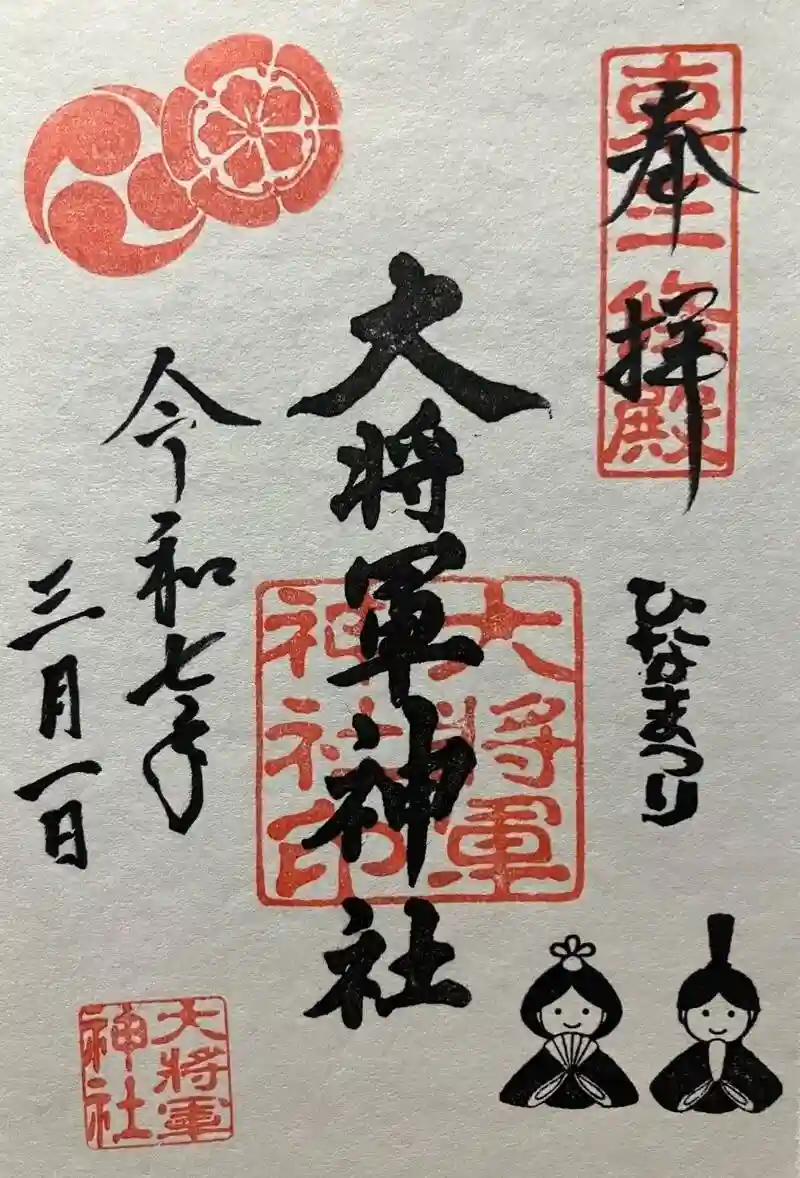 奉拝
東三條殿
ひなまつり
大将軍神社
大將軍
神社印
令和七年
三月一日
大將軍
神社